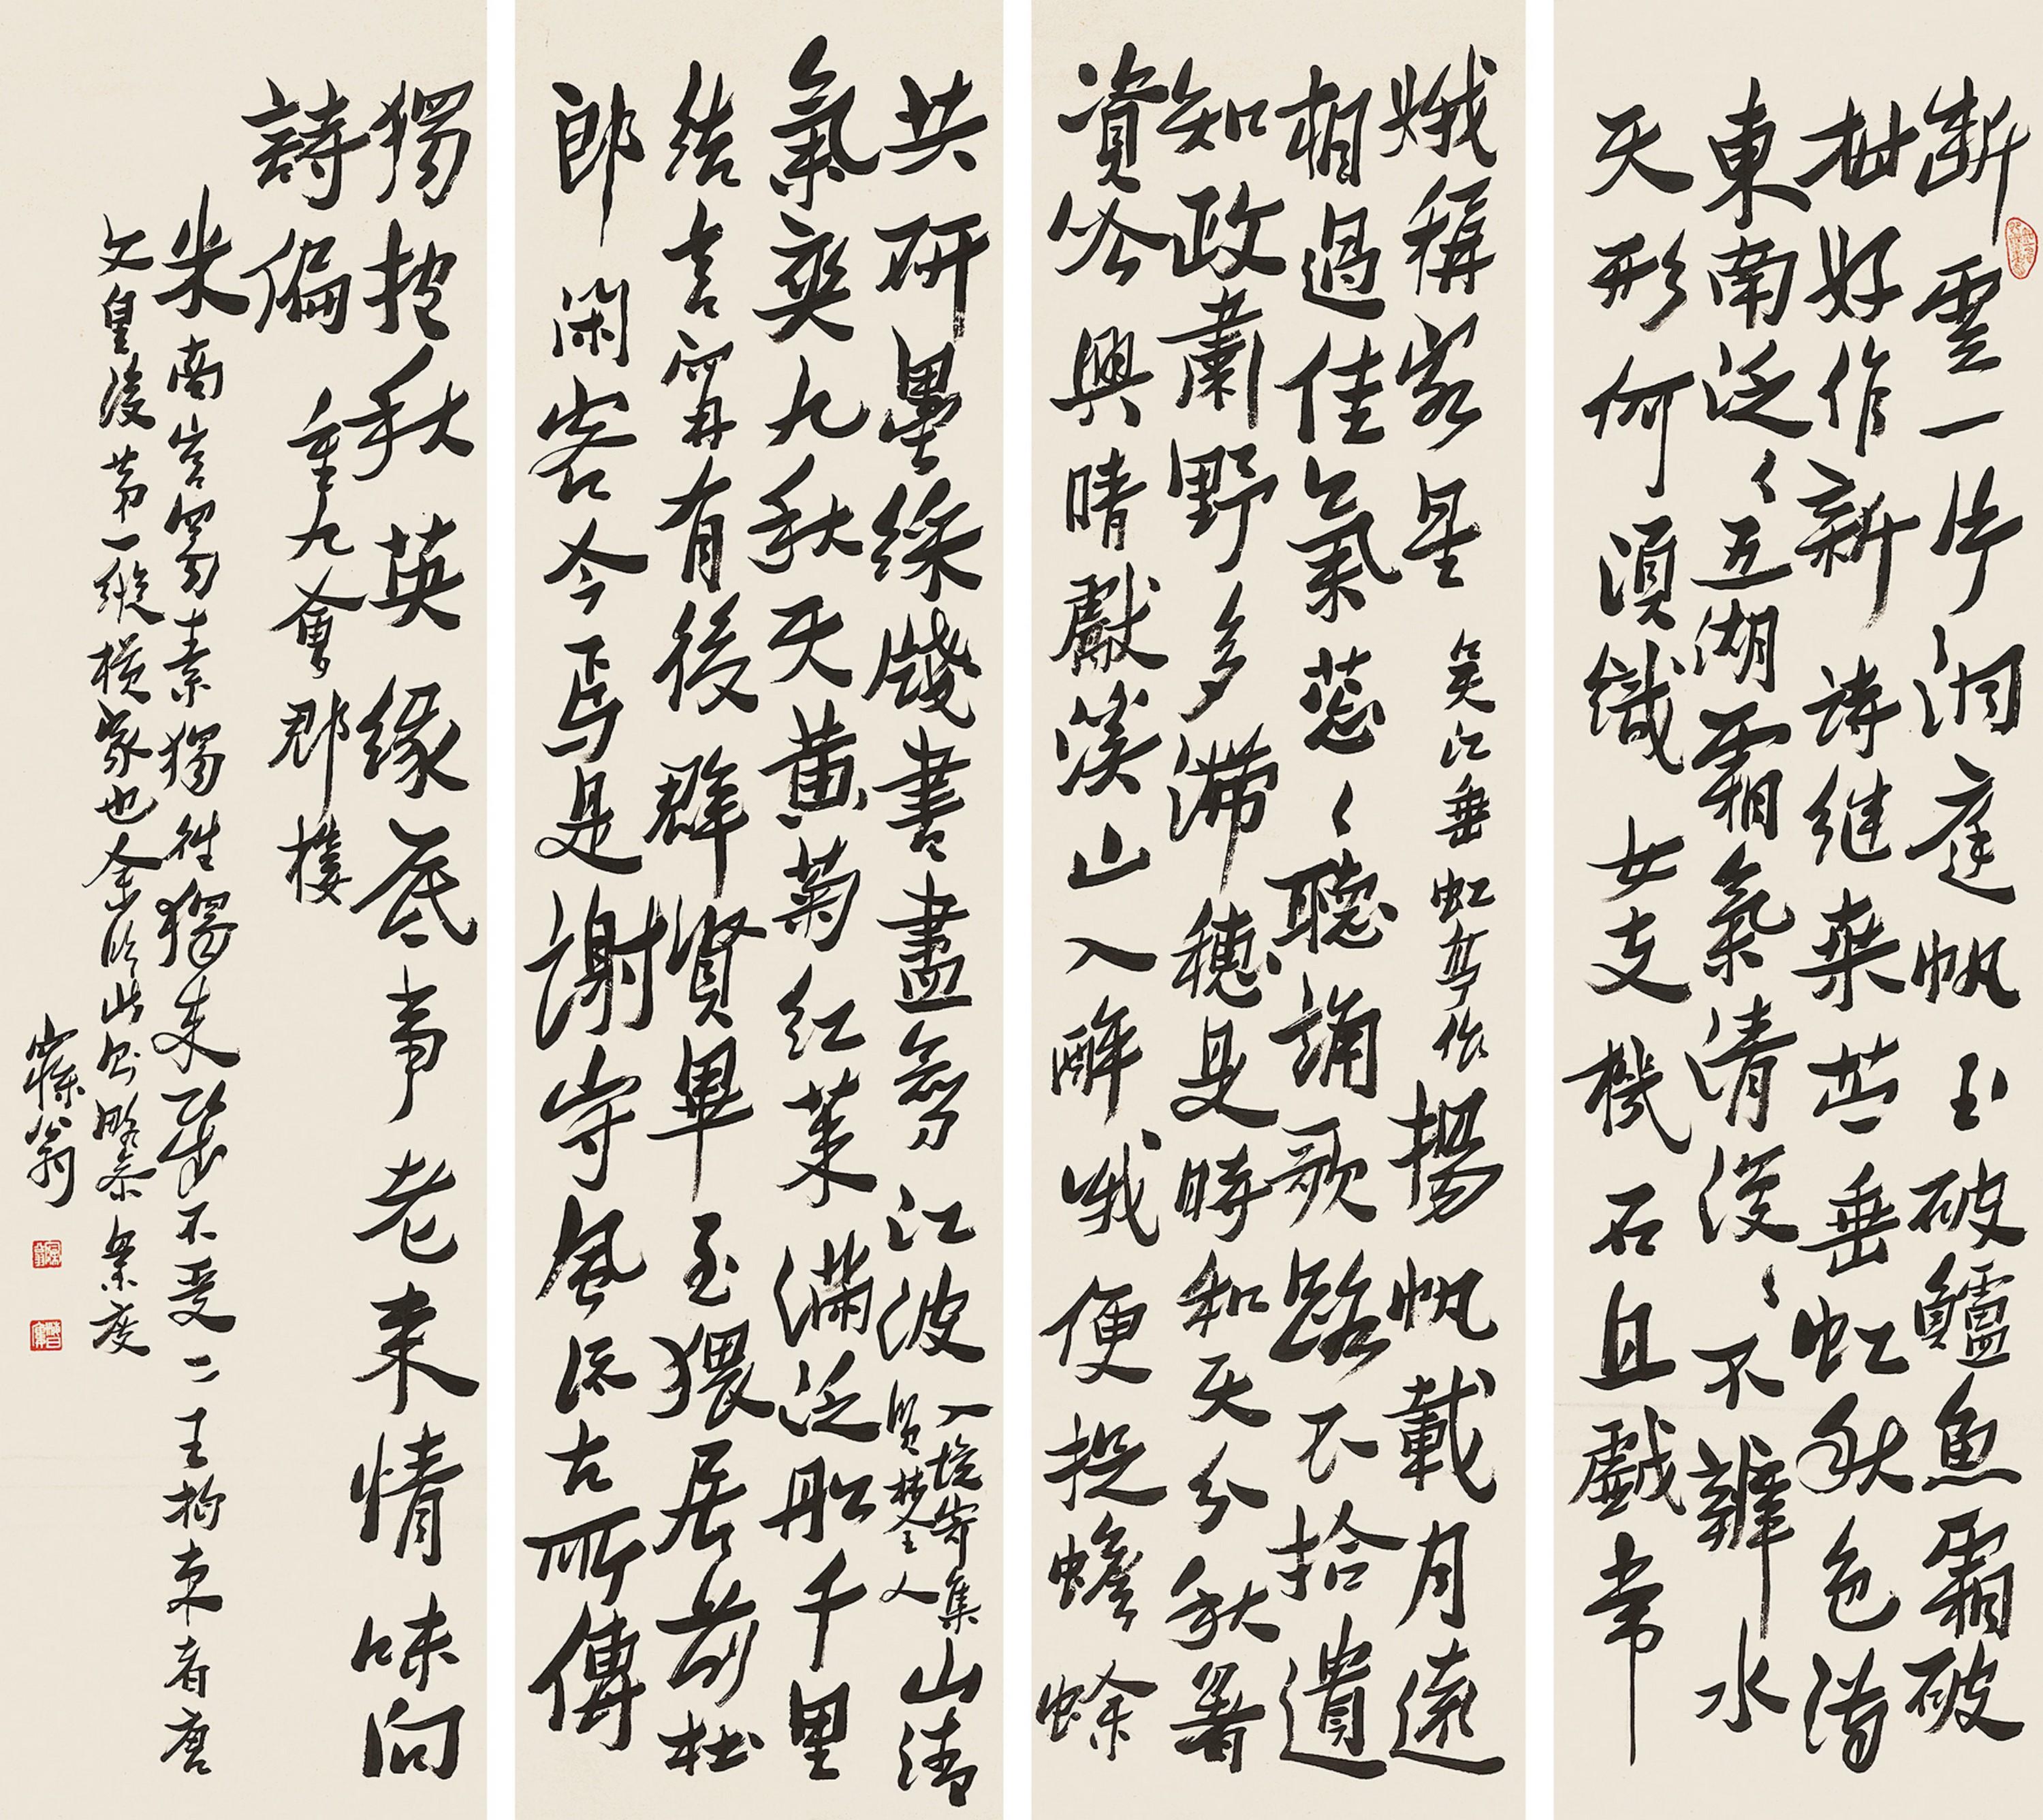 斷雲一片洞庭帆玉破鱸魚霜破
柑好作新詩继桑苎垂虹秋色满
東南泛〻五湖霜氣清漫〻不辨水
天形何須織女支機石且戲常
娥稱客星 吴江垂虹亭作 揚帆載月遠
相過佳氣蔥〻聽誦歌路不拾遺
知政肅野多滯穗是時和天分秋暑
資吟興晴獻溪山入醉哦便捉蟾蜍
共研墨綵牋書盡剪江波 入境寄集賢林舍人 山清
氣爽九秋天黄菊红茱滿泛船千里
結言寧有後群賢畢至猥居前杜
郎閑客今焉是謝守風流古所傳
獨把秋英緣底事老来情味向
詩偏 重九會郡樓
米南宫蜀素獨往獨来不受二王拘束者唐
文皇後第一縱橫家也余臨此略参度
寐翁